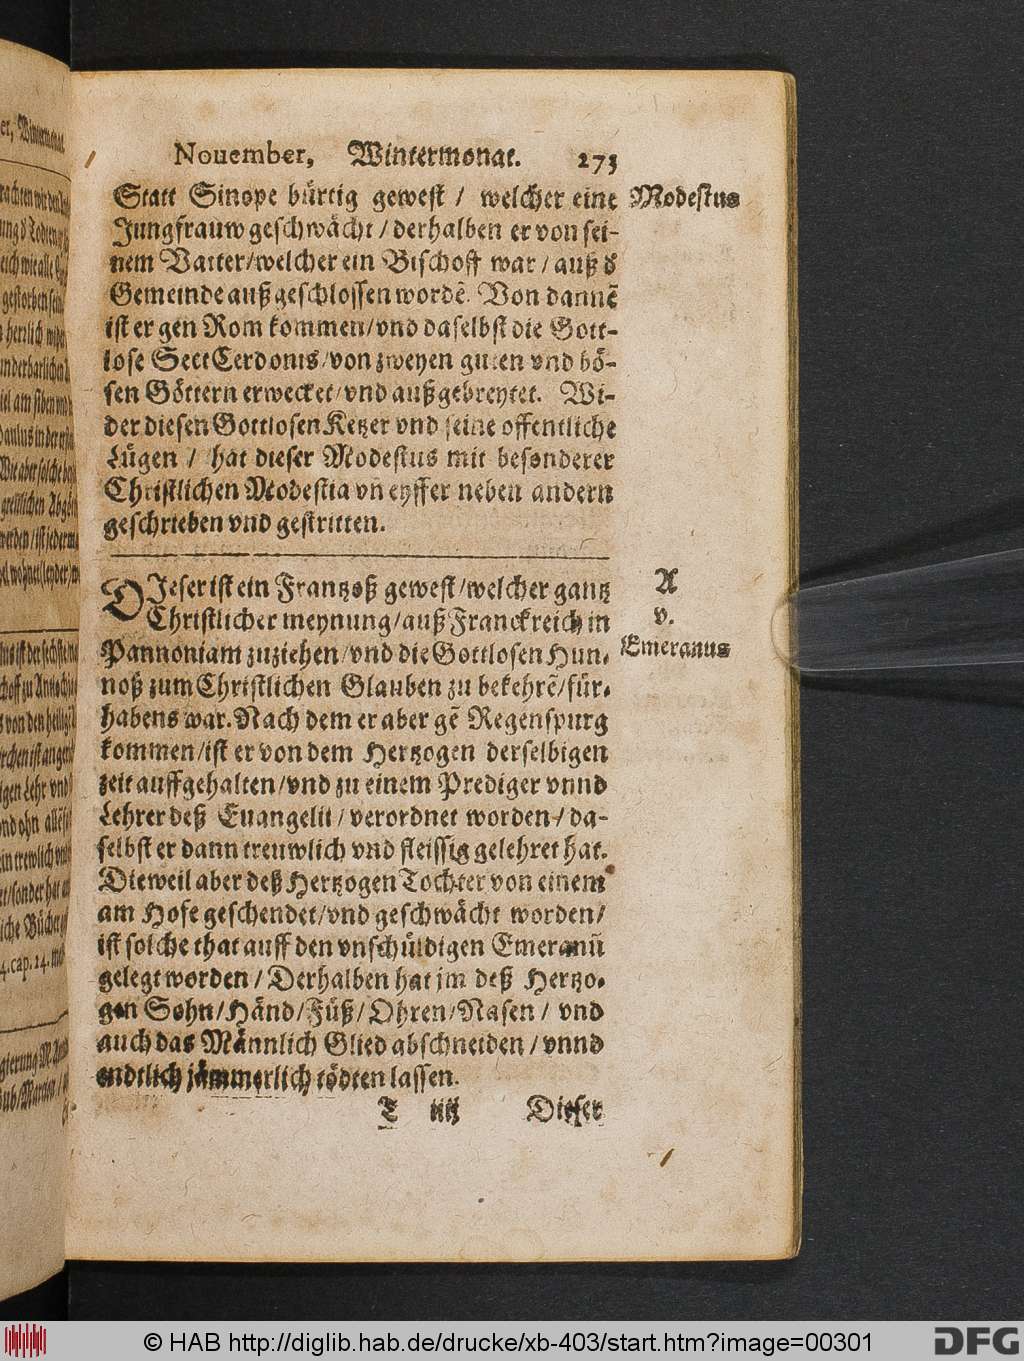 Nouember, Wintermonat. 273
Statt Sinope bürtig gewest / welcher eine
Modestus
Jungfrauw geschwächt / derhalben er von sei-
nem Vatter/welcher ein Bischoff war / auß d̕
Gemeinde außgeschlossen wordẽ. Von dannẽ
ist er gen Rom kommen/vnd daselbst die Gott-
lose Sect Cerdonis/von zweyen guten vnd bö-
sen Göttern erwecket/vnd außgebreytet. Wi-
der diesen Gottlosen Ketzer vnd seine offentliche
Lügen / hat dieser Modestus mit besonderer
Christlichen Modestia vñ eyffer neben andern
geschrieben vnd gestritten.
DJeser ist ein Frantzoß gewest/welcher gantz
A
Christlicher meynung/auß Franckreich in
v.
Pannoniam zuziehen/vnd die Gottlosen Hun-
Emeranus
noß zum Christlichen Glauben zu bekehrẽ/für-
habens war. Nach dem er aber gẽ Regenspurg
kommen/ist er von dem Hertzogen derselbigen
zeit auffgehalten/vnd zu einem Prediger vnnd
Lehrer deß Euangelii / verordnet worden / da-
selbst er dann treuwlich vnd fleissig gelehret hat.
Dieweil aber deß Hertzogen Tochter von einem
am Hofe geschendet/vnd geschwächt worden/
ist solche that auff den vnschüldigen Emeranũ
gelegt worden / Derhalben hat jm deß Hertzo-
gen Sohn/Händ/Füß/Ohren/Nasen / vnd
auch das Männlich Glied abschneiden / vnnd
endtlich jämmerlich tödten lassen.
T iiij Dieser
© HAB http://diglib.hab.de/drucke/xb-403/start.htm?image=00301
DFG